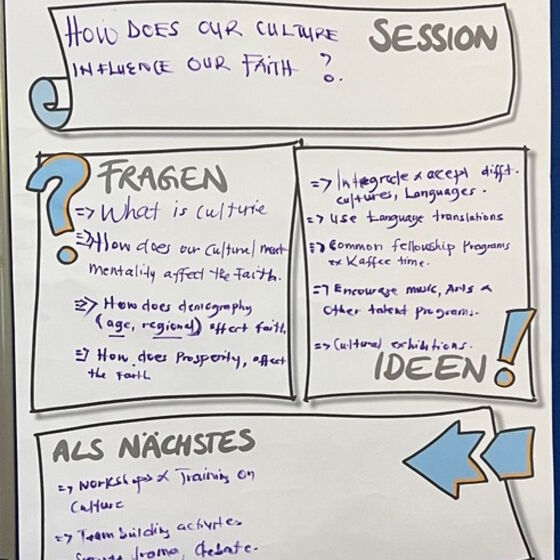 HOW DOES OUR CULTURE
SESSION
INFLUENCE OUR FAITH ?
FRAGEN
=> What is culture
=> How does our Cultural
mentality affect the Faith.
=> How does demography
(age, regional) affect faith,
=> How does Prosperity, affect
the Faith
=> Integrate & accept difft.
cultures, Languages.
=> Use Language translations
=> Common fellowship Programs
ex Kaffee time.
=> Encourage music, Arts &
other talent programs.
=> Cultural exhibitions.
IDEEN!
ALS NÄCHSTES
=> Workshops & Training on
Culture
=> Team building activities
drama, debate.